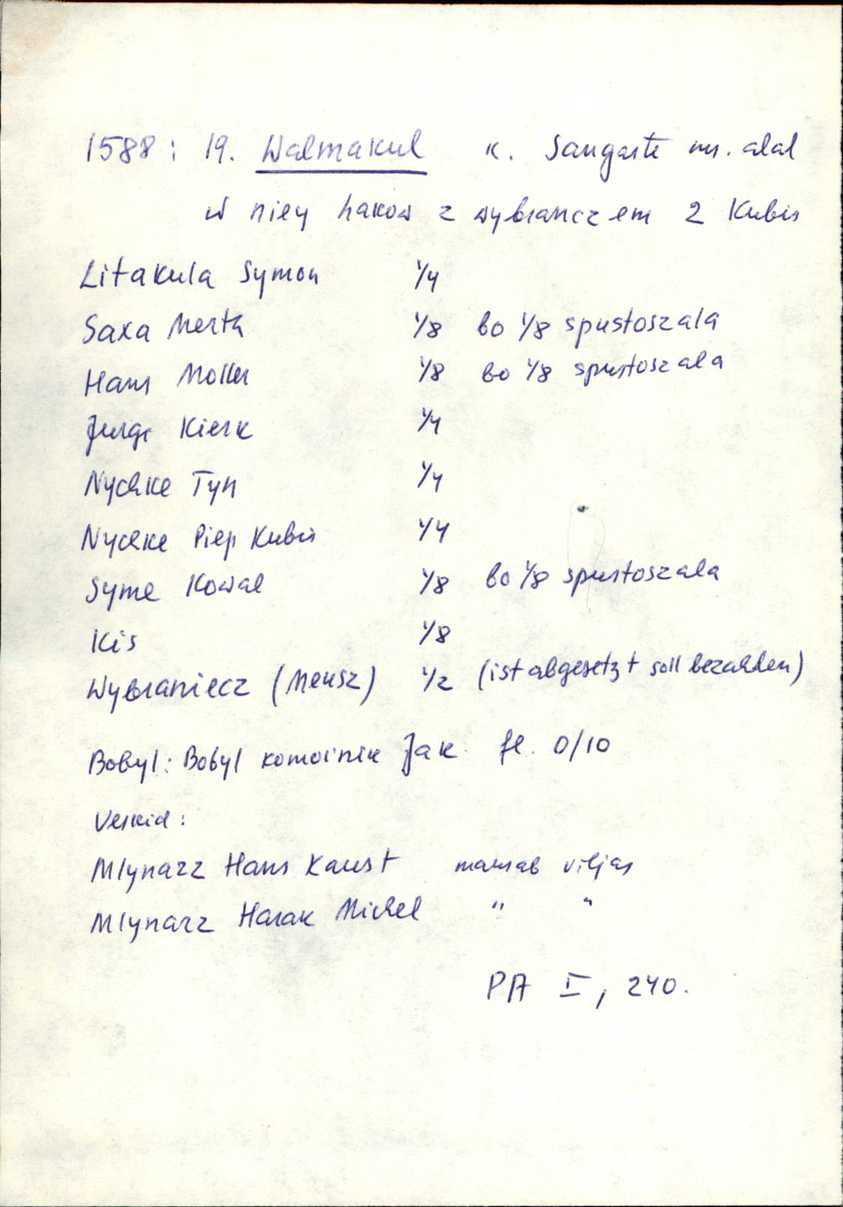 1588: 19. Walmakul k. Sangaste ms. alal
w niey hakow z wybranczem 2 Kubis
Litakula Symon 1/4
Saxa Merth 1/8 bo 1/8 spustoszala
Hans Moller 1/8 bo 1/8 spustoszala
Jurgi Kierk 1/4
Nychke Tyn 1/4
Nychke Piep Kubis 1/4
Syme Kowal 1/8 bo 1/8 spustoszala
Kis 1/8
Wybraniecz (Meusz) 1/2 (ist abgesetzt soll bezahlen)
Bobyl: Bobyl komornik Jak fl. 0/10
Veskid:
Mlynarz Hans Kaust maksab viljas
Mlynarz Harak Michel " "
PA I, 240.